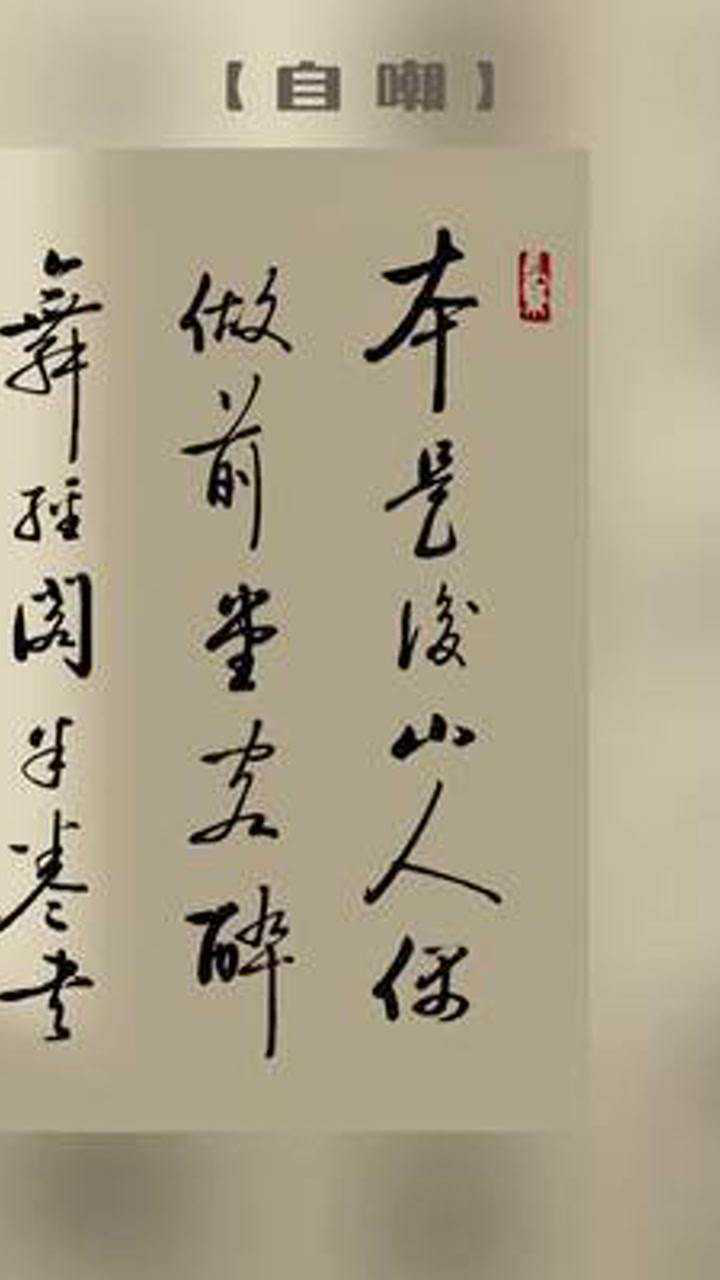 【自嘲】
本是後山人偶
做前堂客醉
舞經閣半卷书